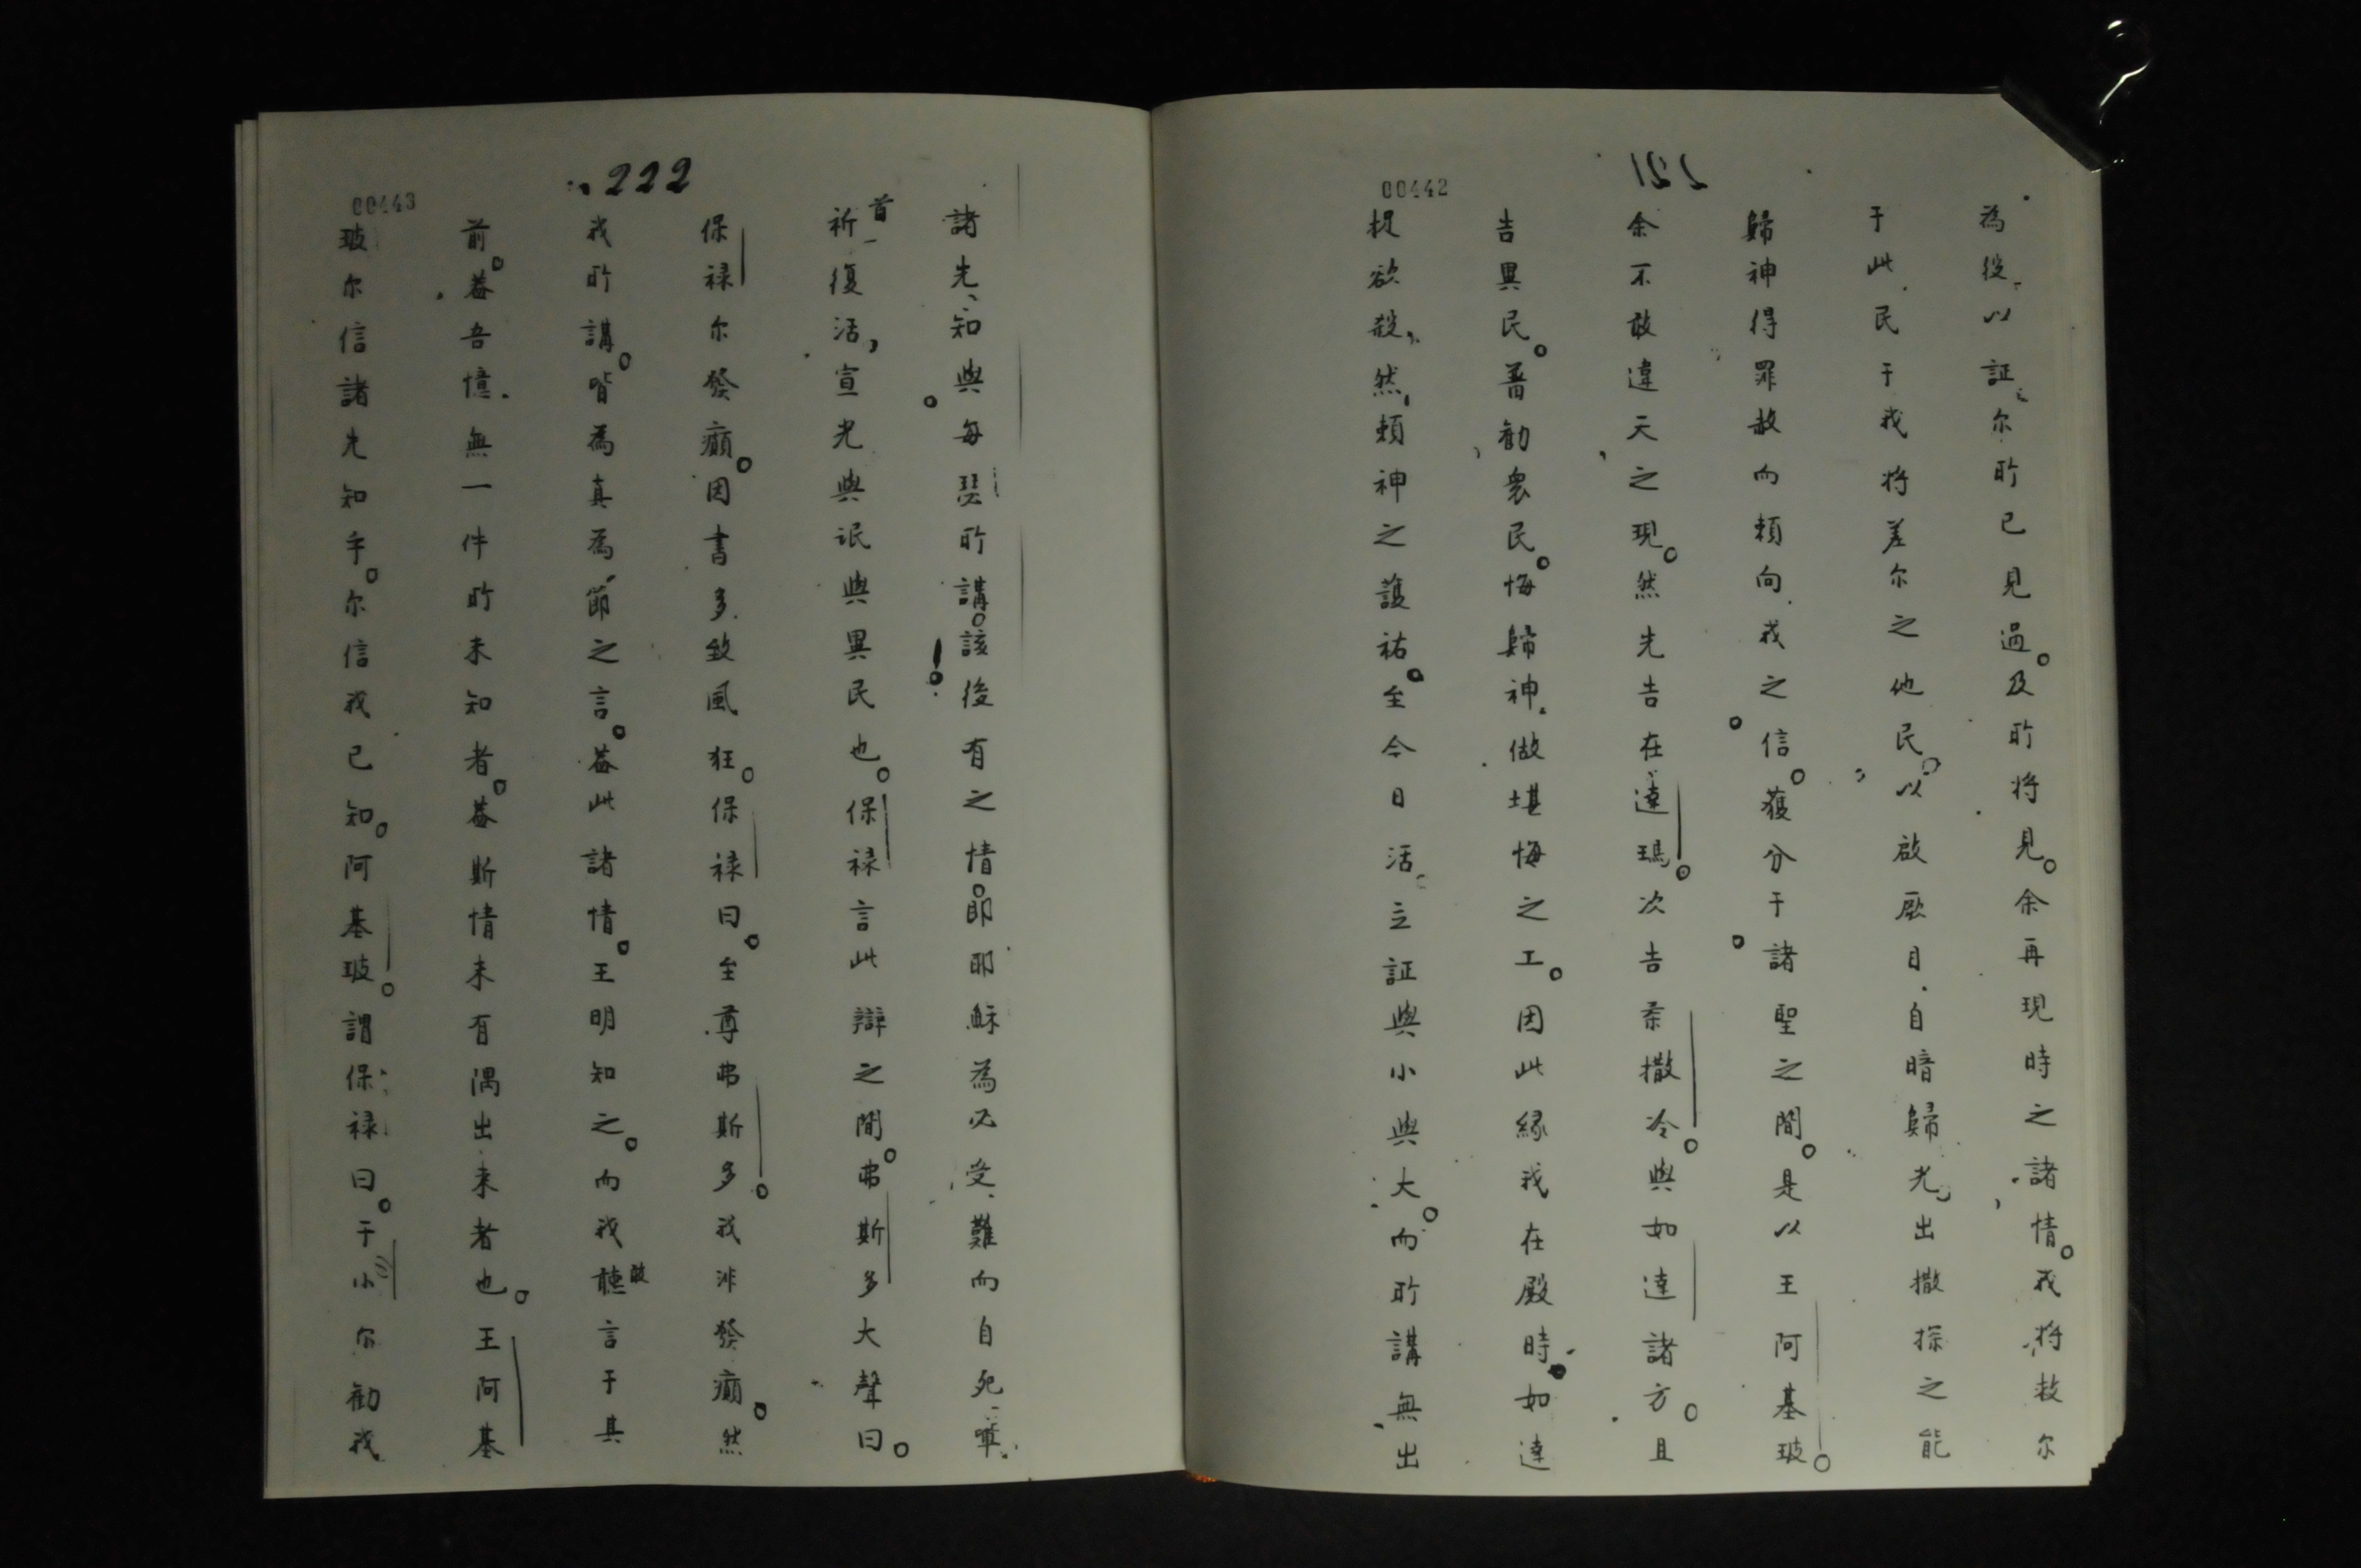 221
00442
為役以証尔所已見過。及所将見。余再現時之諸情。我将救尔
于此民于我将差尔之他民。以啟厥目自暗歸光出撒探之能
歸神得罪赦而頼向我之信。獲分于諸聖之間。是以王阿基玻。
余不敢違天之現。然先告在達瑪。次告柔撒冷。與如達諸方。且
吉異民。普勸衆民。悔歸神做堪悔之工。因此縁我在殿時如達
捉欲殺。然頼神之護祐。至今日活立証與小與大。而所講無出
222
00443
諸先知與每瑟所講。該後有之情。即耶穌為必受難而自死
首祈復活，宣光與氓與異民也。保禄言此辯之間。弗斯多大聲曰。
保禄尔發癲。因書多致風狂。保禄曰。至尊弗斯多。我非發癲。然
我所講。皆為真為節之言。蓋此諸情。王明知之。而我敢聽言于其
前。蓋吾憶無一件所未知者。蓋斯情未有隅出来者也。王阿基
玻尔信諸先知乎。尔信我已知。阿基玻。謂保禄曰。于小尔勸我